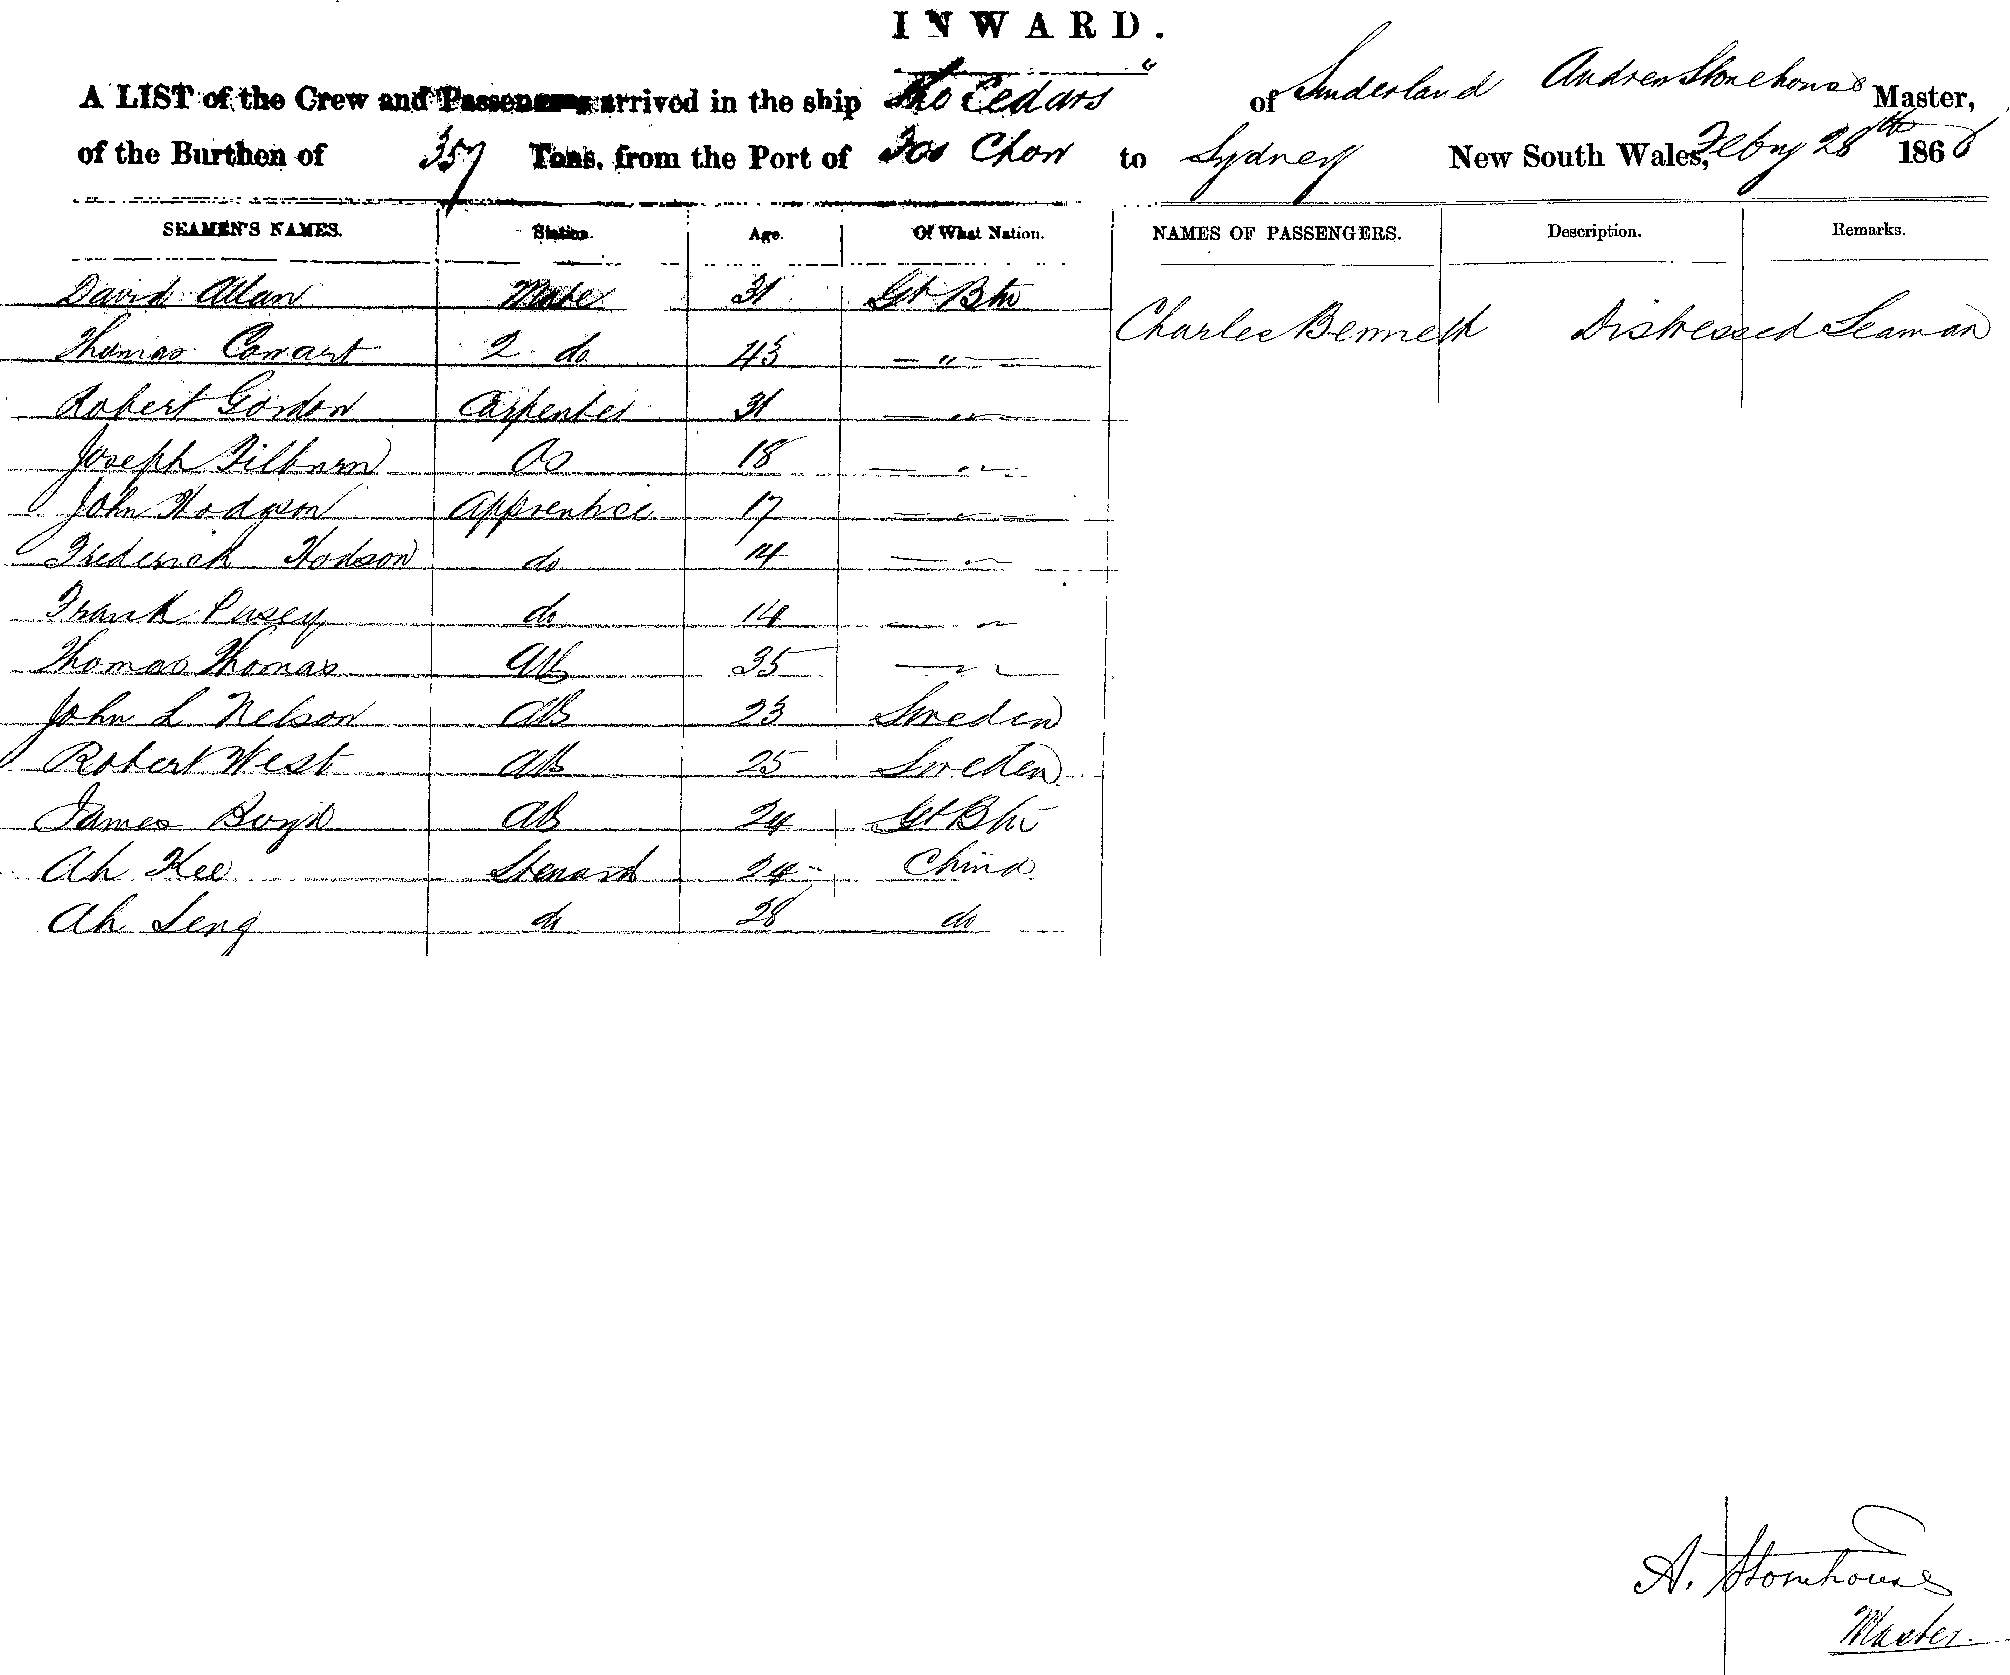 INWARD.
A LIST of the Crew and Passengers arrived in the ship "The Cedars" of Sunderland Andrew Stonehouse Master,
of the Burthen of 357 Tons, from the Port of Foo Chow to Sydney New South Wales, Feby 28th 186
SEAMEN'S NAMES. Station. Age. Of What Nation. NAMES OF PASSENGERS. Description. Remarks.
David Allan Mate 31 Gt Btn
Charles Bennett Distressed Seaman
Thomas 2 do 43 "
Robert Gordon Carpenter 31 "
Joseph Os 18 "
John Hodgson Apprentice 17 "
Frederick Hodson do 14 "
Frank do 14 "
Thomas Thomas AB 35 "
John L Nelson AB 23 Sweden
Robert West AB 25 Sweden
James Boyd AB 24 Gt Btn
Ah Kee Steward 24 China
Ah Seng do 28 do
A. Stonehouse
Master